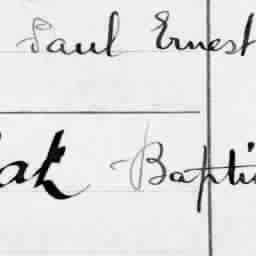 Paul Ernest
Bapti